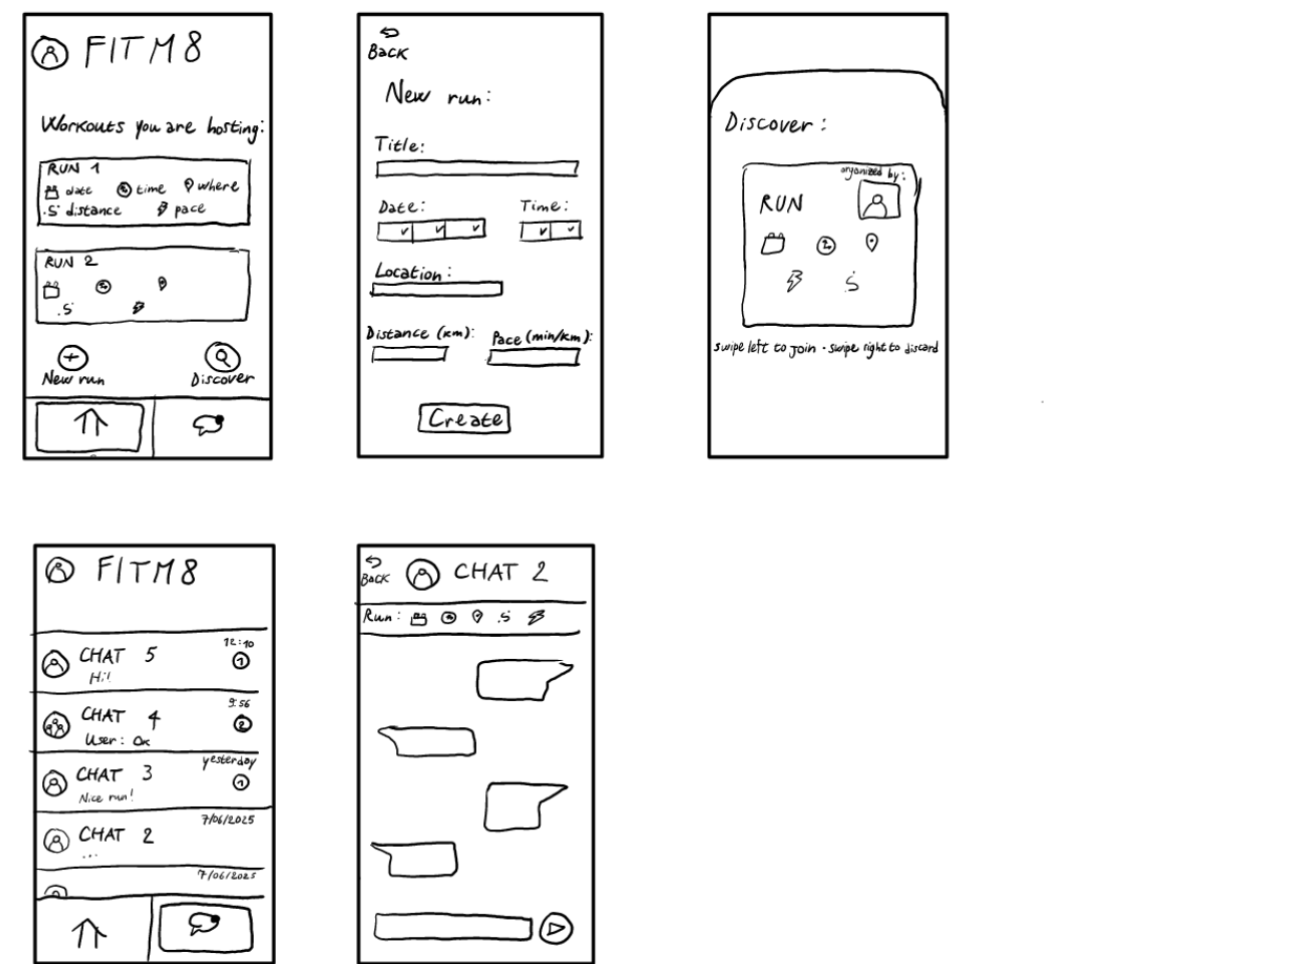 FITM8
Workouts you are hosting:
RUN 1
date time where
.S distance pace
RUN 2
.S
New run Discover
Back
New run:
Title:
Date: Time:
Location:
Distance (km): Pace (min/km):
Create
Discover:
organized by:
RUN
S
swipe left to join - swipe right to discard
FITM8
12:40
CHAT 5 1
Hi!
9:56
CHAT 4 2
User: Ok
yesterday
CHAT 3 1
Nice run!
7/06/2025
CHAT 2
...
7/06/2025
Back CHAT 2
Run: .S